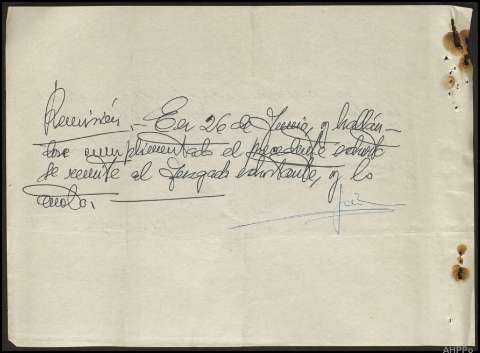 Remisión.- En 26 de Junio, y hallán-
dose cumplimentado el precedente exhorto
se remite al Juzgado exhortante, y lo
anoto.
AHPPo